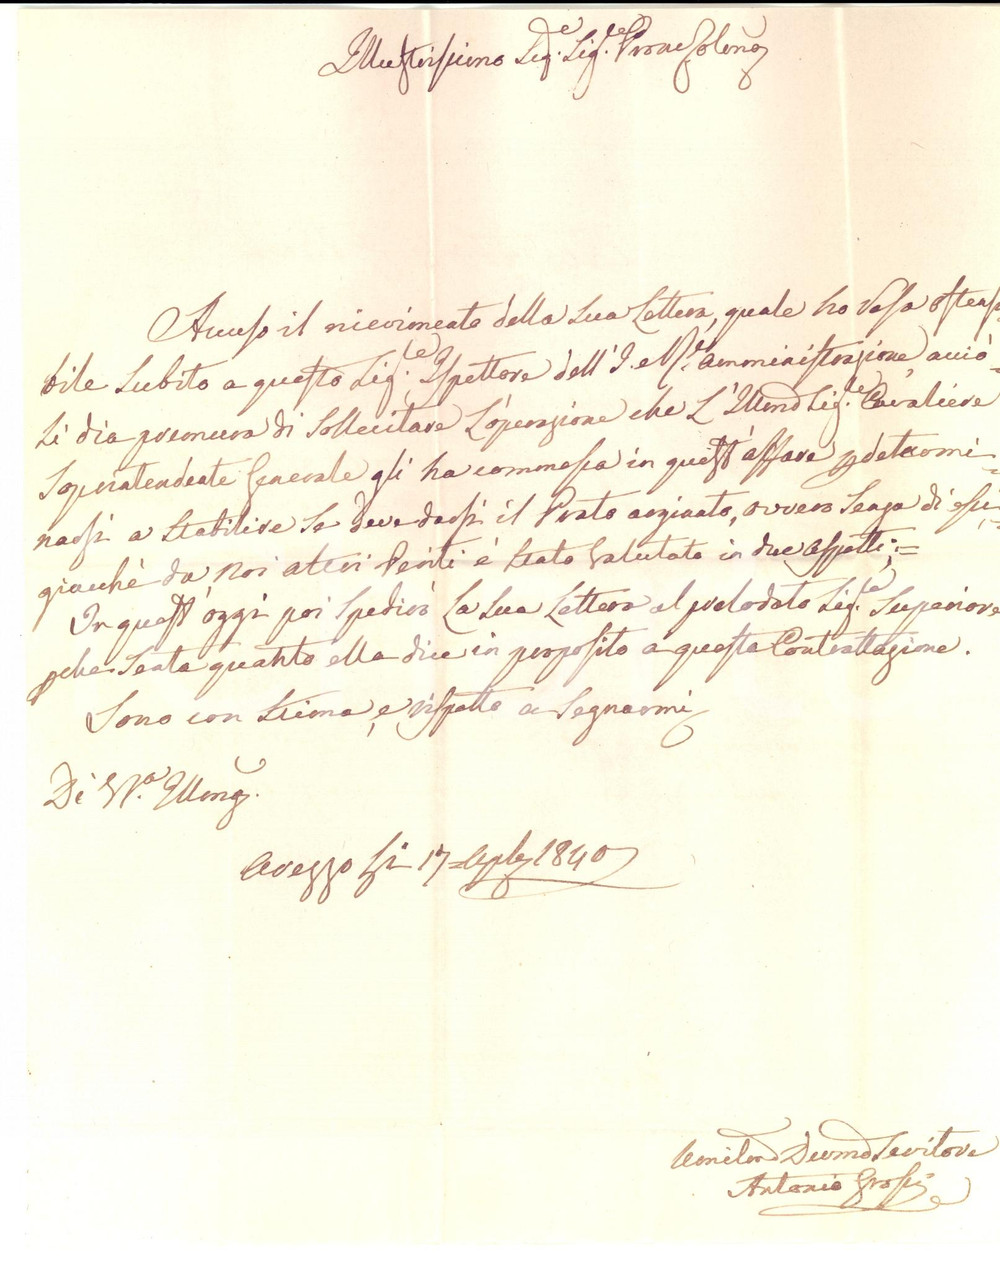 Illustrissimo Sig.e Sig.e Prone Colen.o
Accuso il ricevimento della sua Lettera, quale ho resa ostensi=
bile subito a questo Sig.le Ispettore dell' I. e R.e Amministrazione, acciò
si dia premura di sollecitare l'operazione che L'Illmo Sig.le Cavaliere
Soprintendente Generale gli ha commessa in quest'affare p determi=
narsi a stabilire se deve darsi il Prato arginato, ovvero senza di essi
giacchè da noi altri Periti è stato valutato in due aspetti;=
In quest'oggi poi spedirà la sua Lettera al prelodato Sig.re Superiore
pche senta quanto ella dice in proposito a questa Contrattazione.
Sono con stima, e rispetto a segnarmi
Di V.a Illma.
Arezzo li 17= Aple 1840
Umilmo Devmo Servitore
Antonio Grossi